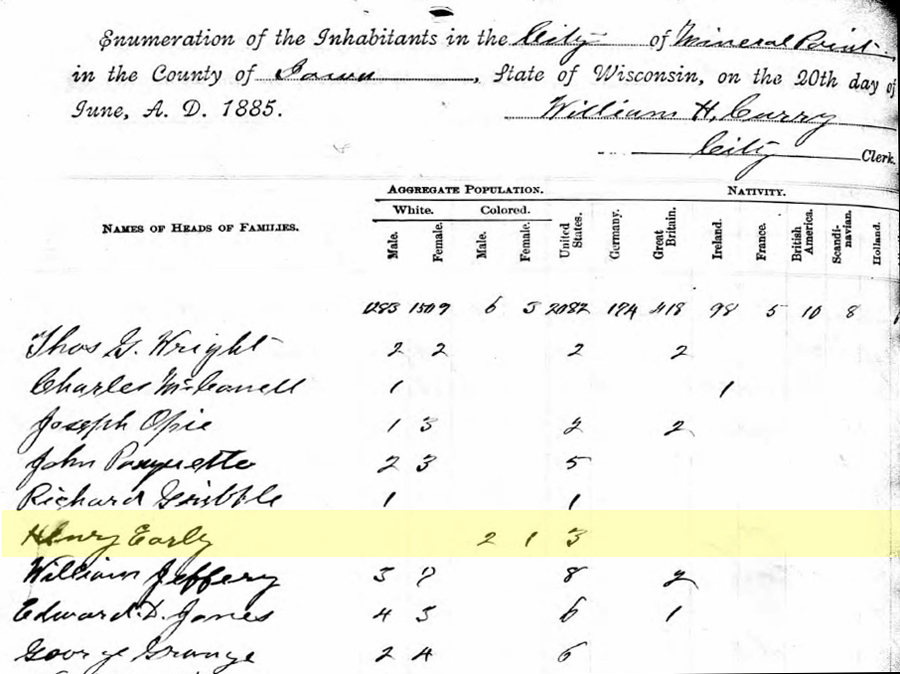 Enumeration of the Inhabitants in the City of Mineral Point,
in the County of Iowa, State of Wisconsin, on the 20th day of
June, A. D. 1885.
William H. Curry
City Clerk.
AGGREGATE POPULATION. NATIVITY.
NAMES OF HEADS OF FAMILIES. White. Colored.
Male. Female. Male. Female. United States. Germany. Great Britain. Ireland. France. British America. Scandinavian. Holland.
1283 1509 6 3 2082 174 418 98 5 10 8
Thos G. Wright 2 2 2 2
Charles 1 1
Joseph Opie 1 3 2 2
John 2 3 5
Richard Gribble 1 1
Henry Early 2 1 3
William Jeffery 3 7 8 2
Edward D. Jones 4 3 6 1
George Grange 2 4 6